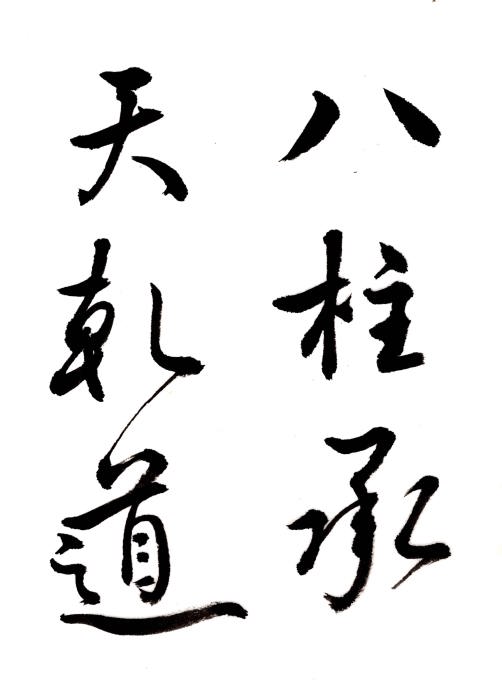 八柱承
天乾道